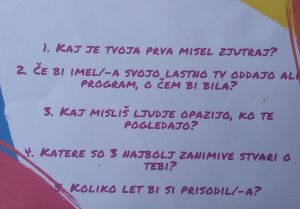 1. Kaj je tvoja prva misel zjutraj?
2. Če bi imel/-a svojo lastno tv oddajo ali
program, o čem bi bila?
3. Kaj misliš ljudje opazijo, ko te
pogledajo?
4. Katere so 3 najbolj zanimive stvari o
tebi?
5. Koliko let bi si prisodil/-a?